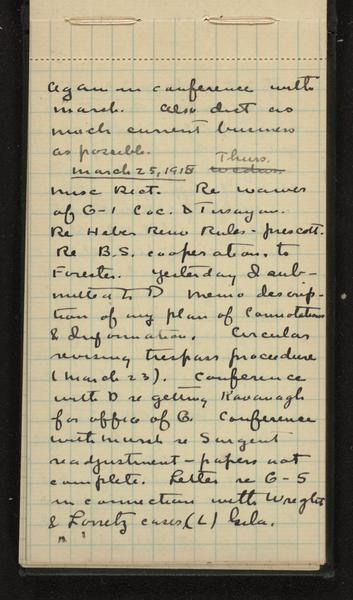 again in conference with
Marsh. Also dict as
much current business
as possible. Thurs.
March 25, 1915
Misc Dict. Re waiver
of G-1 Coc. & Tusayan.
Re Heber Reno Rules - Prescott.
Re B.S. cooperation, to
Forester. Yesterday I sub-
mitted to D memo descrip-
tion of my plan of
& Information. Circular
revising trespass procedure
(March 23). Conference
with D re getting Kavanagh
for office of G. Conference
with Marsh re Sargent
readjustment - papers not
complete. Letter re G-5
in connection with Wright
& Loretz cases, (L) Gila.